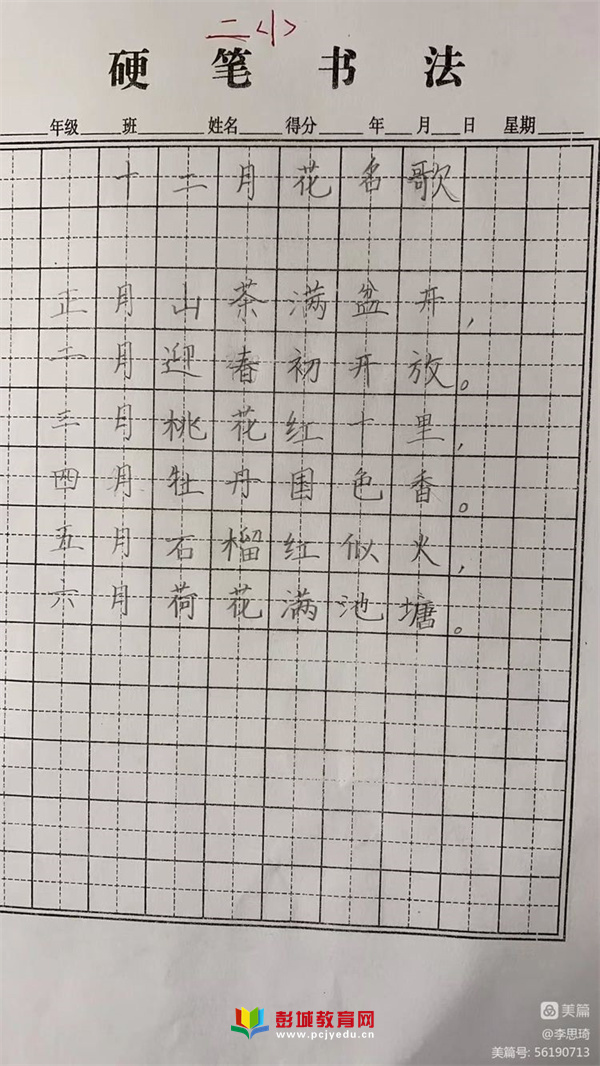 二〈1〉
硬笔书法
年级 班 姓名 得分 年 月 日 星期
十二月花名歌
正月山茶满盆开，
二月迎春初开放。
三月桃花红十里，
四月牡丹国色香。
五月石榴红似火，
六月荷花满池塘。
彭城教育网
www.pcjyedu.cn
美篇
@李思琦
美篇号: 56190713